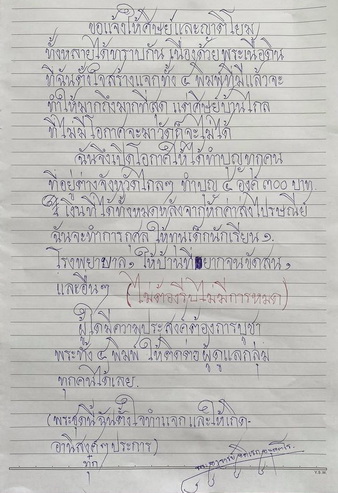 ขอแจ้งให้ศิษย์และญาติโยม
ทั้งหลายได้ทราบกัน เนื่องด้วยพระเนื้อดิน
ที่ฉันตั้งใจสร้างแจกทั้ง ๔ พิมพ์ที่มีแล้วจะ
ทำให้มากถึงมากที่สุด แต่ศิษย์บ้านไกล
ที่ไม่มีโอกาศจะมาวัดก็จะไม่ได้
ฉันจึงเปิดโอกาศให้ได้ทำบุญทุกคน
ที่อยู่ต่างจังหวัดไกลๆ ทำบุญ ๔ องค์ ๓๐๐ บาท
เงินที่ได้ทั้งหมดหลังจากหักค่าส่งไปรษณีย์
ฉันจะทำการกุศล ให้ทุนเด็กนักเรียน ๑.
โรงพยาบาล ๑ ให้บ้านที่ยากจนขัดสน ๑
และอื่นๆ (ไม่ต้องรีบไม่มีการหมด)
ผู้ใดมีความประสงค์ต้องการบูชา
พระทั้ง ๔ พิมพ์ ให้ติดต่อ ผู้ดูแลกลุ่ม
ทุกคนได้เลย.
(พระชุดนี้ฉันตั้งใจทำแจก และให้เกิด-
อานิสงส์ๆประการ)
ทุก